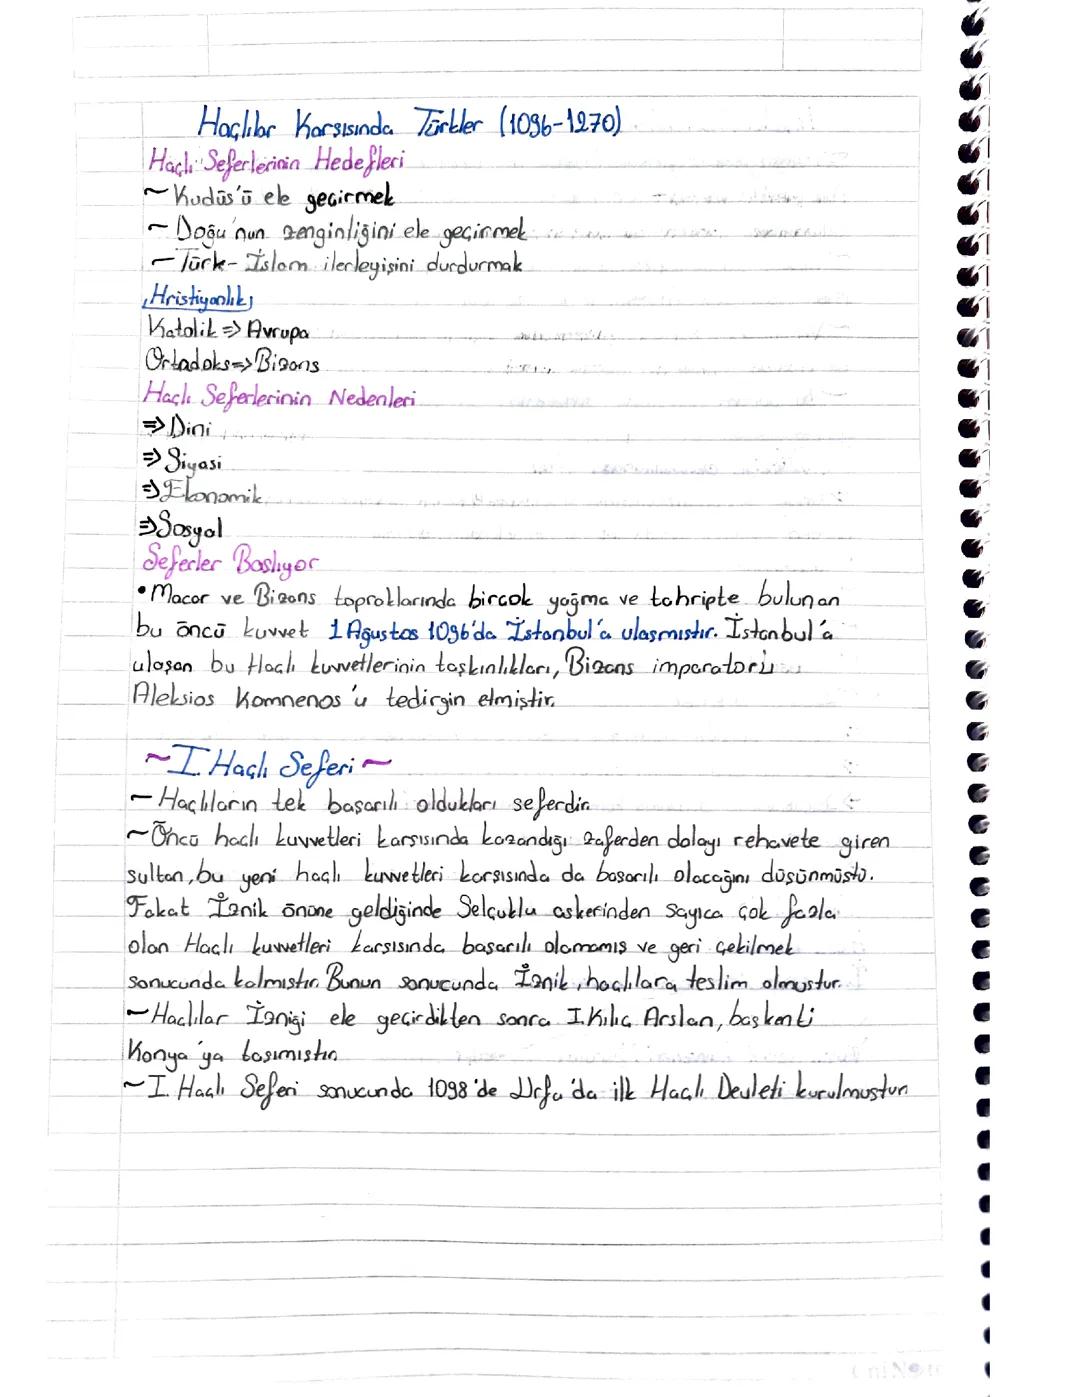 Haçlılar Karşısında Türkler (1096-1270)
Haçlı Seferlerinin Hedefleri
~ Kudüs'ü ele geçirmek
~ Doğu'nun zenginliğini ele geçirmek
~ Türk-İslam ilerleyişini durdurmak
Hristiyanlık
Katolik => Avrupa
Ortadoks => Bizans
Haçlı Seferlerinin Nedenleri
=> Dini
=> Siyasi
=> Ekonomik
=> Sosyal
Seferler Başlıyor
• Macar ve Bizans topraklarında birçok yağma ve tahripte bulunan
bu öncü kuvvet 1 Ağustos 1096'da İstanbul'a ulaşmıştır. İstanbul'a
ulaşan bu Haçlı kuvvetlerinin taşkınlıkları, Bizans imparatoru
Aleksios Komnenos'u tedirgin etmiştir.
~ I. Haçlı Seferi ~
~ Haçlıların tek başarılı oldukları seferdir.
~ Öncü haçlı kuvvetleri karşısında kazandığı zaferden dolayı rehavete giren
sultan, bu yeni haçlı kuvvetleri karşısında da başarılı olacağını düşünmüştü.
Fakat İznik önüne geldiğinde Selçuklu askerinden sayıca çok fazla
olan Haçlı kuvvetleri karşısında başarılı olamamış ve geri çekilmek
sonucunda kalmıştır. Bunun sonucunda İznik, haçlılara teslim olmuştur.
~ Haçlılar İzniği ele geçirdikten sonra I. Kılıç Arslan, başkenti
Konya'ya taşımıştır.
~ I. Haçlı Seferi sonucunda 1098'de Urfa'da ilk Haçlı Devleti kurulmuştur.